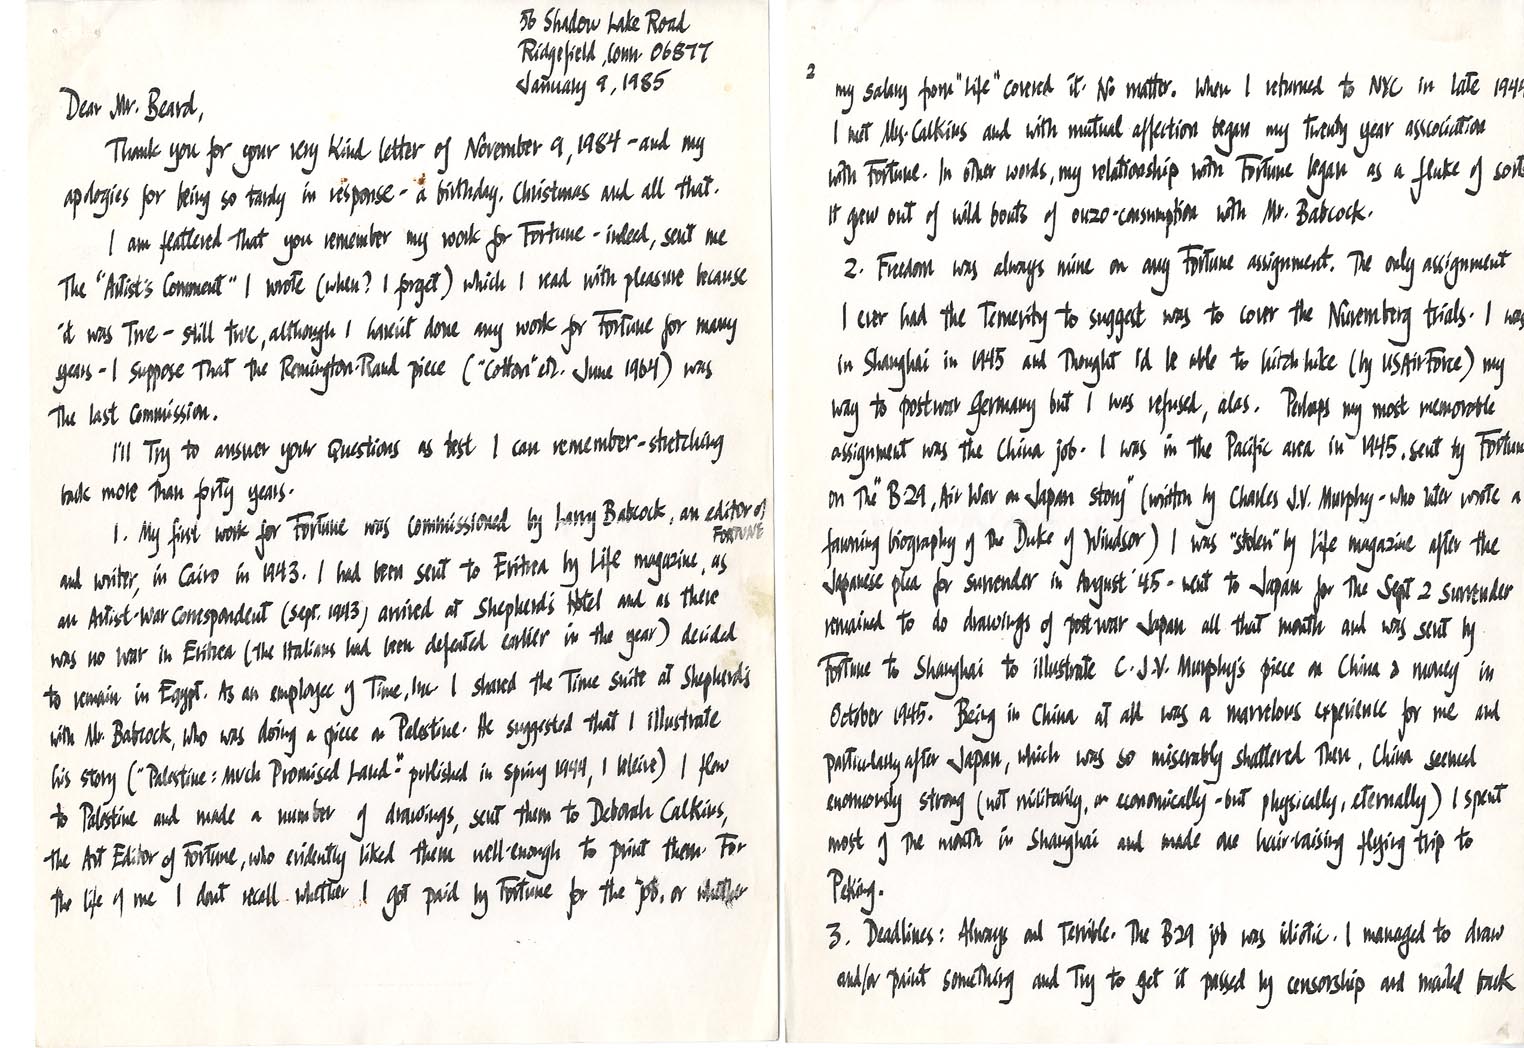 56 Shadow Lake Road
Ridgefield, Conn. 06877
January 9, 1985
Dear Mr. Beard,
Thank you for your very kind letter of November 9, 1984 - and my
apologies for being so tardy in response - a birthday, Christmas and all that.
I am flattered that you remember my work for Fortune - indeed, sent me
The "Artist's Comment" I wrote (when? I forget) which I read with pleasure because
it was True - still true, although I haven't done any work for Fortune for many
years - I suppose That the Remington-Rand piece ("Cotton" etc. June 1964) was
The last Commission.
I'll Try to answer your Questions as best I can remember - stretching
back more Than forty years.
1. My first work for Fortune was commissioned by Larry Babcock, an editor of
FORTUNE
and writer, in Cairo in 1943. I had been sent to Eritrea by Life magazine, as
an Artist-War Correspondent (Sept. 1943) arrived at Shepherd's Hotel and as there
was no war in Eritrea (the Italians had been defeated earlier in the year) decided
to remain in Egypt. As an employee of Time, Inc. I shared the Time suite at Shepherd's
with Mr. Babcock, who was doing a piece on Palestine. He suggested that I illustrate
his story ("Palestine: Much Promised Land" published in Spring 1944, I believe) I flew
to Palestine and made a number of drawings, sent them to Deborah Calkins,
the Art Editor of Fortune, who evidently liked them well-enough to print them. For
the life of me I don't recall whether I got paid by Fortune for the job, or whether
2
my salary from "Life" covered it. No matter. When I returned to NYC in late 1944
I met Ms. Calkins and with mutual affection began my twenty year association
with Fortune. In other words, my relationship with Fortune began as a fluke of sorts
It grew out of wild bouts of ouzo-consumption with Mr. Babcock.
2. Freedom was always mine on any Fortune assignment. The only assignment
I ever had the Temerity to suggest was to cover the Nuremberg trials. I was
in Shanghai in 1945 and Thought I'd be able to hitch hike (by US Air Force) my
way to postwar Germany but I was refused, alas. Perhaps my most memorable
assignment was the China job. I was in the Pacific area in 1945, sent by Fortune
on The "B-29, Air War on Japan story" (written by Charles J.V. Murphy - who later wrote a
fawning biography of The Duke of Windsor) I was "stolen" by Life magazine after the
Japanese plea for surrender in August '45 - went to Japan for The Sept 2 surrender
remained to do drawings of postwar Japan all that month and was sent by
Fortune to Shanghai to illustrate C.J.V. Murphy's piece on China & money in
October 1945. Being in China at all was a marvelous experience for me and
particularly after Japan, which was so miserably shattered Then, China seemed
enormously strong (not militarily, or economically - but physically, eternally) I spent
most of The month in Shanghai and made one hair-raising flying trip to
Peking.
3. Deadlines: Always and Terrible. The B29 job was idiotic. I managed to draw
and/or paint something and Try to get it passed by censorship and mailed back